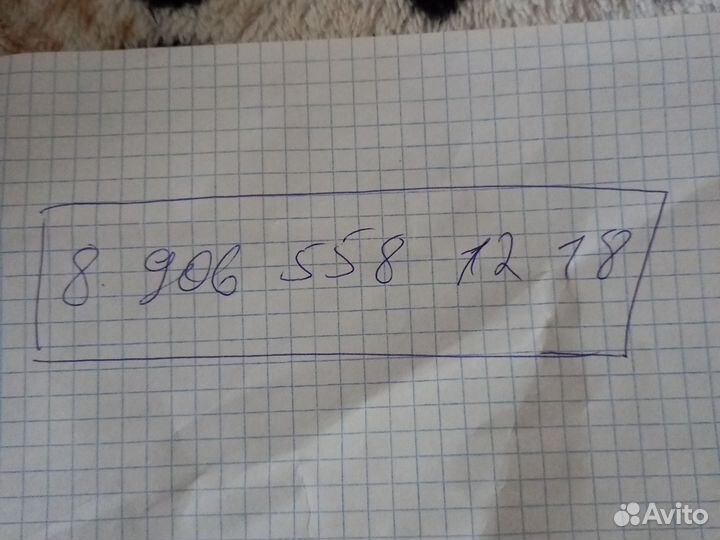 8 906 558 12 18
Avito